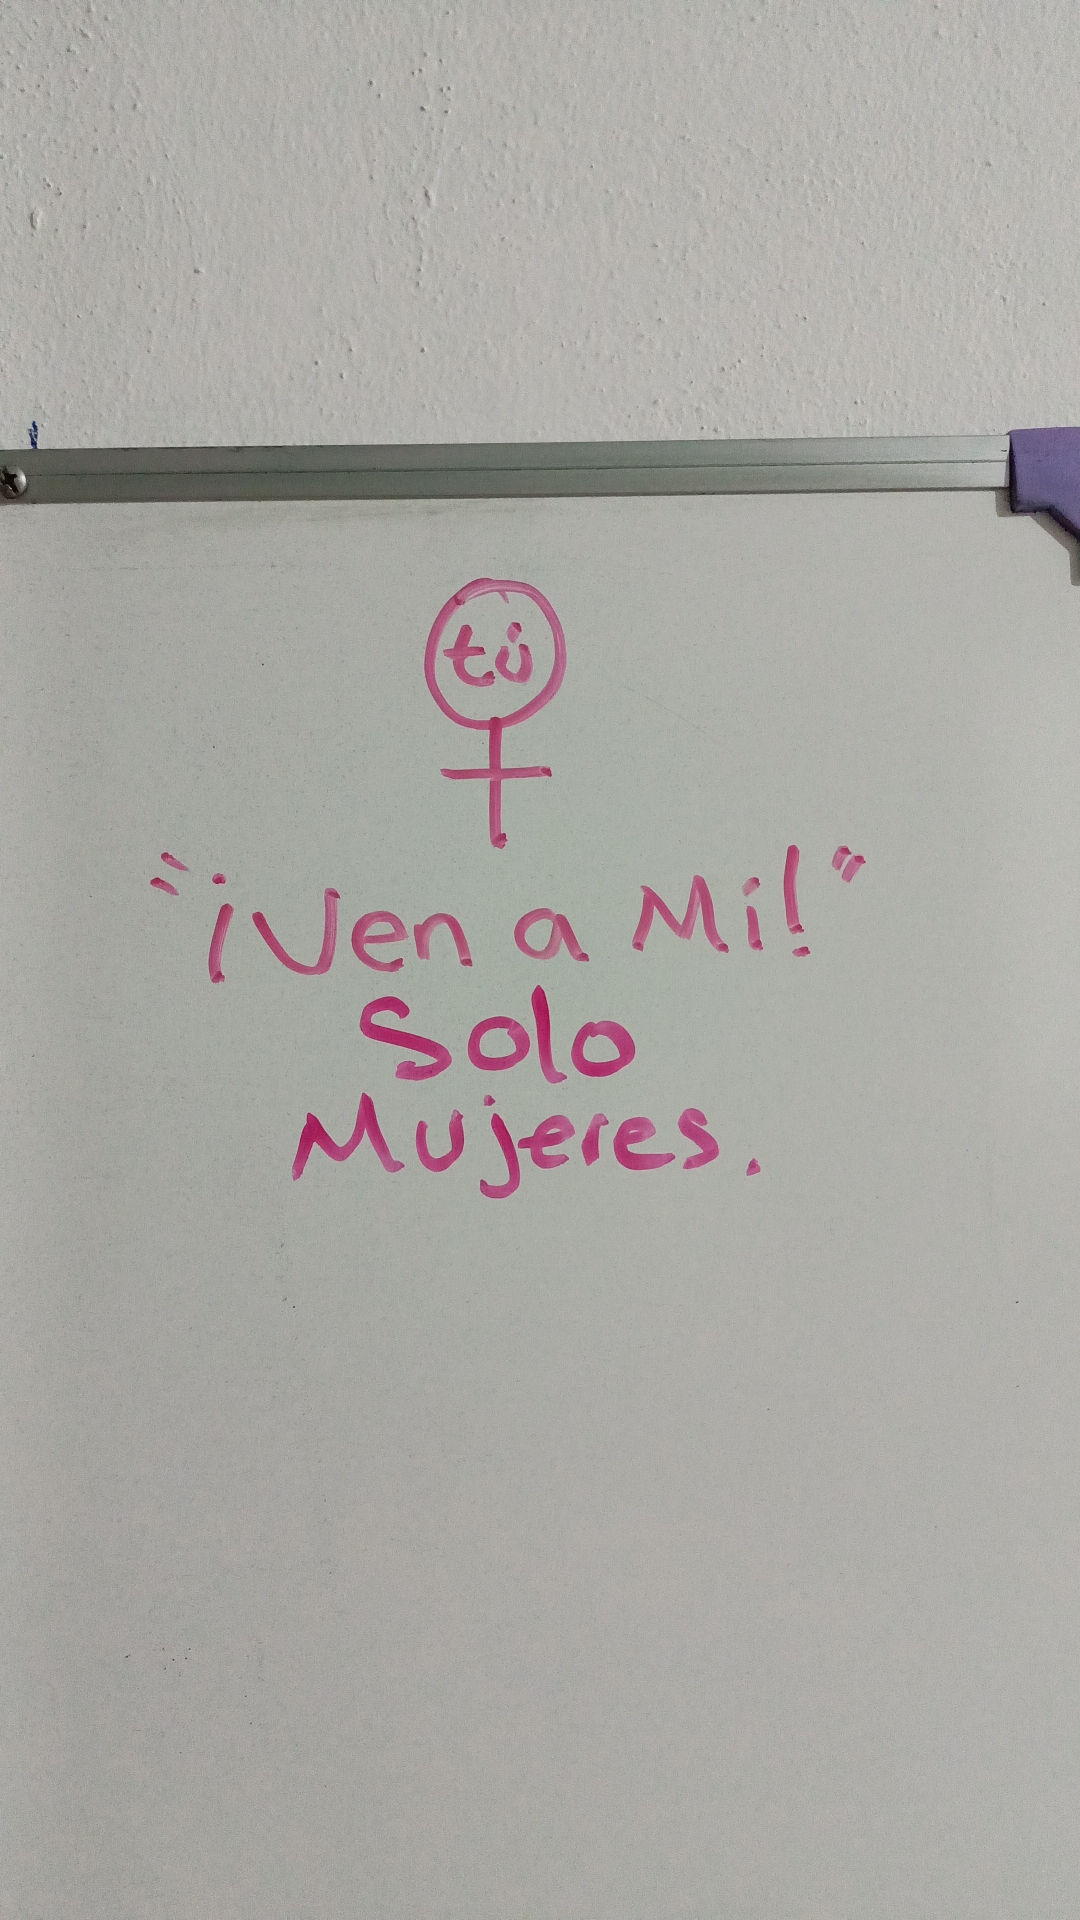 tú
"¡Ven a Mi!"
Solo
Mujeres.